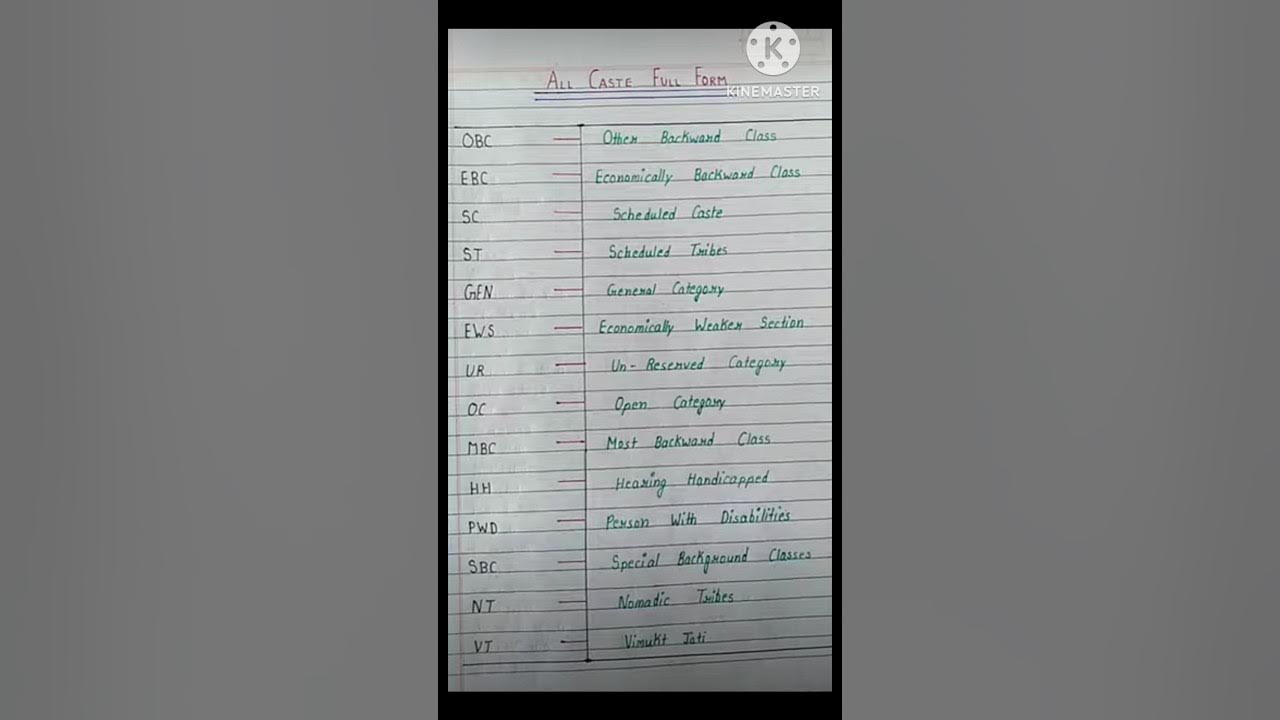 KINEMASTER
ALL CASTE FULL FORM
OBC — Other Backward Class
EBC — Economically Backward Class
SC — Scheduled Caste
ST — Scheduled Tribes
GEN — General Category
EWS — Economically Weaker Section
UR — Un-Reserved Category
OC — Open Category
MBC — Most Backward Class
HH — Hearing Handicapped
PWD — Person With Disabilities
SBC — Special Background Classes
NT — Nomadic Tribes
VJ — Vimukt Jati